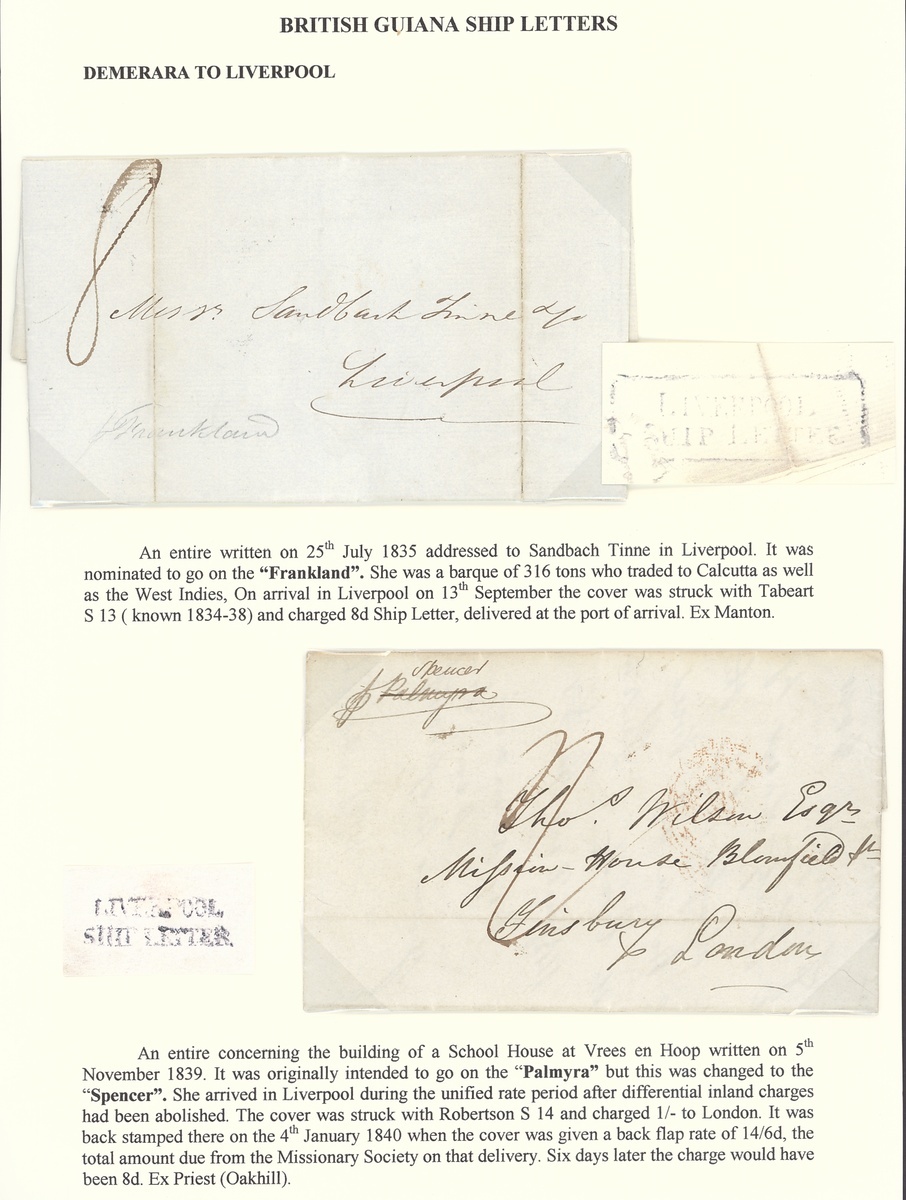 BRITISH GUIANA SHIP LETTERS
DEMERARA TO LIVERPOOL
8
Messrs. Sandbach Tinne & Co
Liverpool
p Frankland
LIVERPOOL
SHIP LETTER
An entire written on 25th July 1835 addressed to Sandbach Tinne in Liverpool. It was
nominated to go on the “Frankland”. She was a barque of 316 tons who traded to Calcutta as well
as the West Indies, On arrival in Liverpool on 13th September the cover was struck with Tabeart
S 13 ( known 1834-38) and charged 8d Ship Letter, delivered at the port of arrival. Ex Manton.
Spencer
p Palmyra
Thos. Wilson Esqr
Mission-House Blomfield St
Finsbury
London
LIVERPOOL
SHIP LETTER
An entire concerning the building of a School House at Vrees en Hoop written on 5th
November 1839. It was originally intended to go on the “Palmyra” but this was changed to the
“Spencer”. She arrived in Liverpool during the unified rate period after differential inland charges
had been abolished. The cover was struck with Robertson S 14 and charged 1/- to London. It was
back stamped there on the 4th January 1840 when the cover was given a back flap rate of 14/6d, the
total amount due from the Missionary Society on that delivery. Six days later the charge would have
been 8d. Ex Priest (Oakhill).